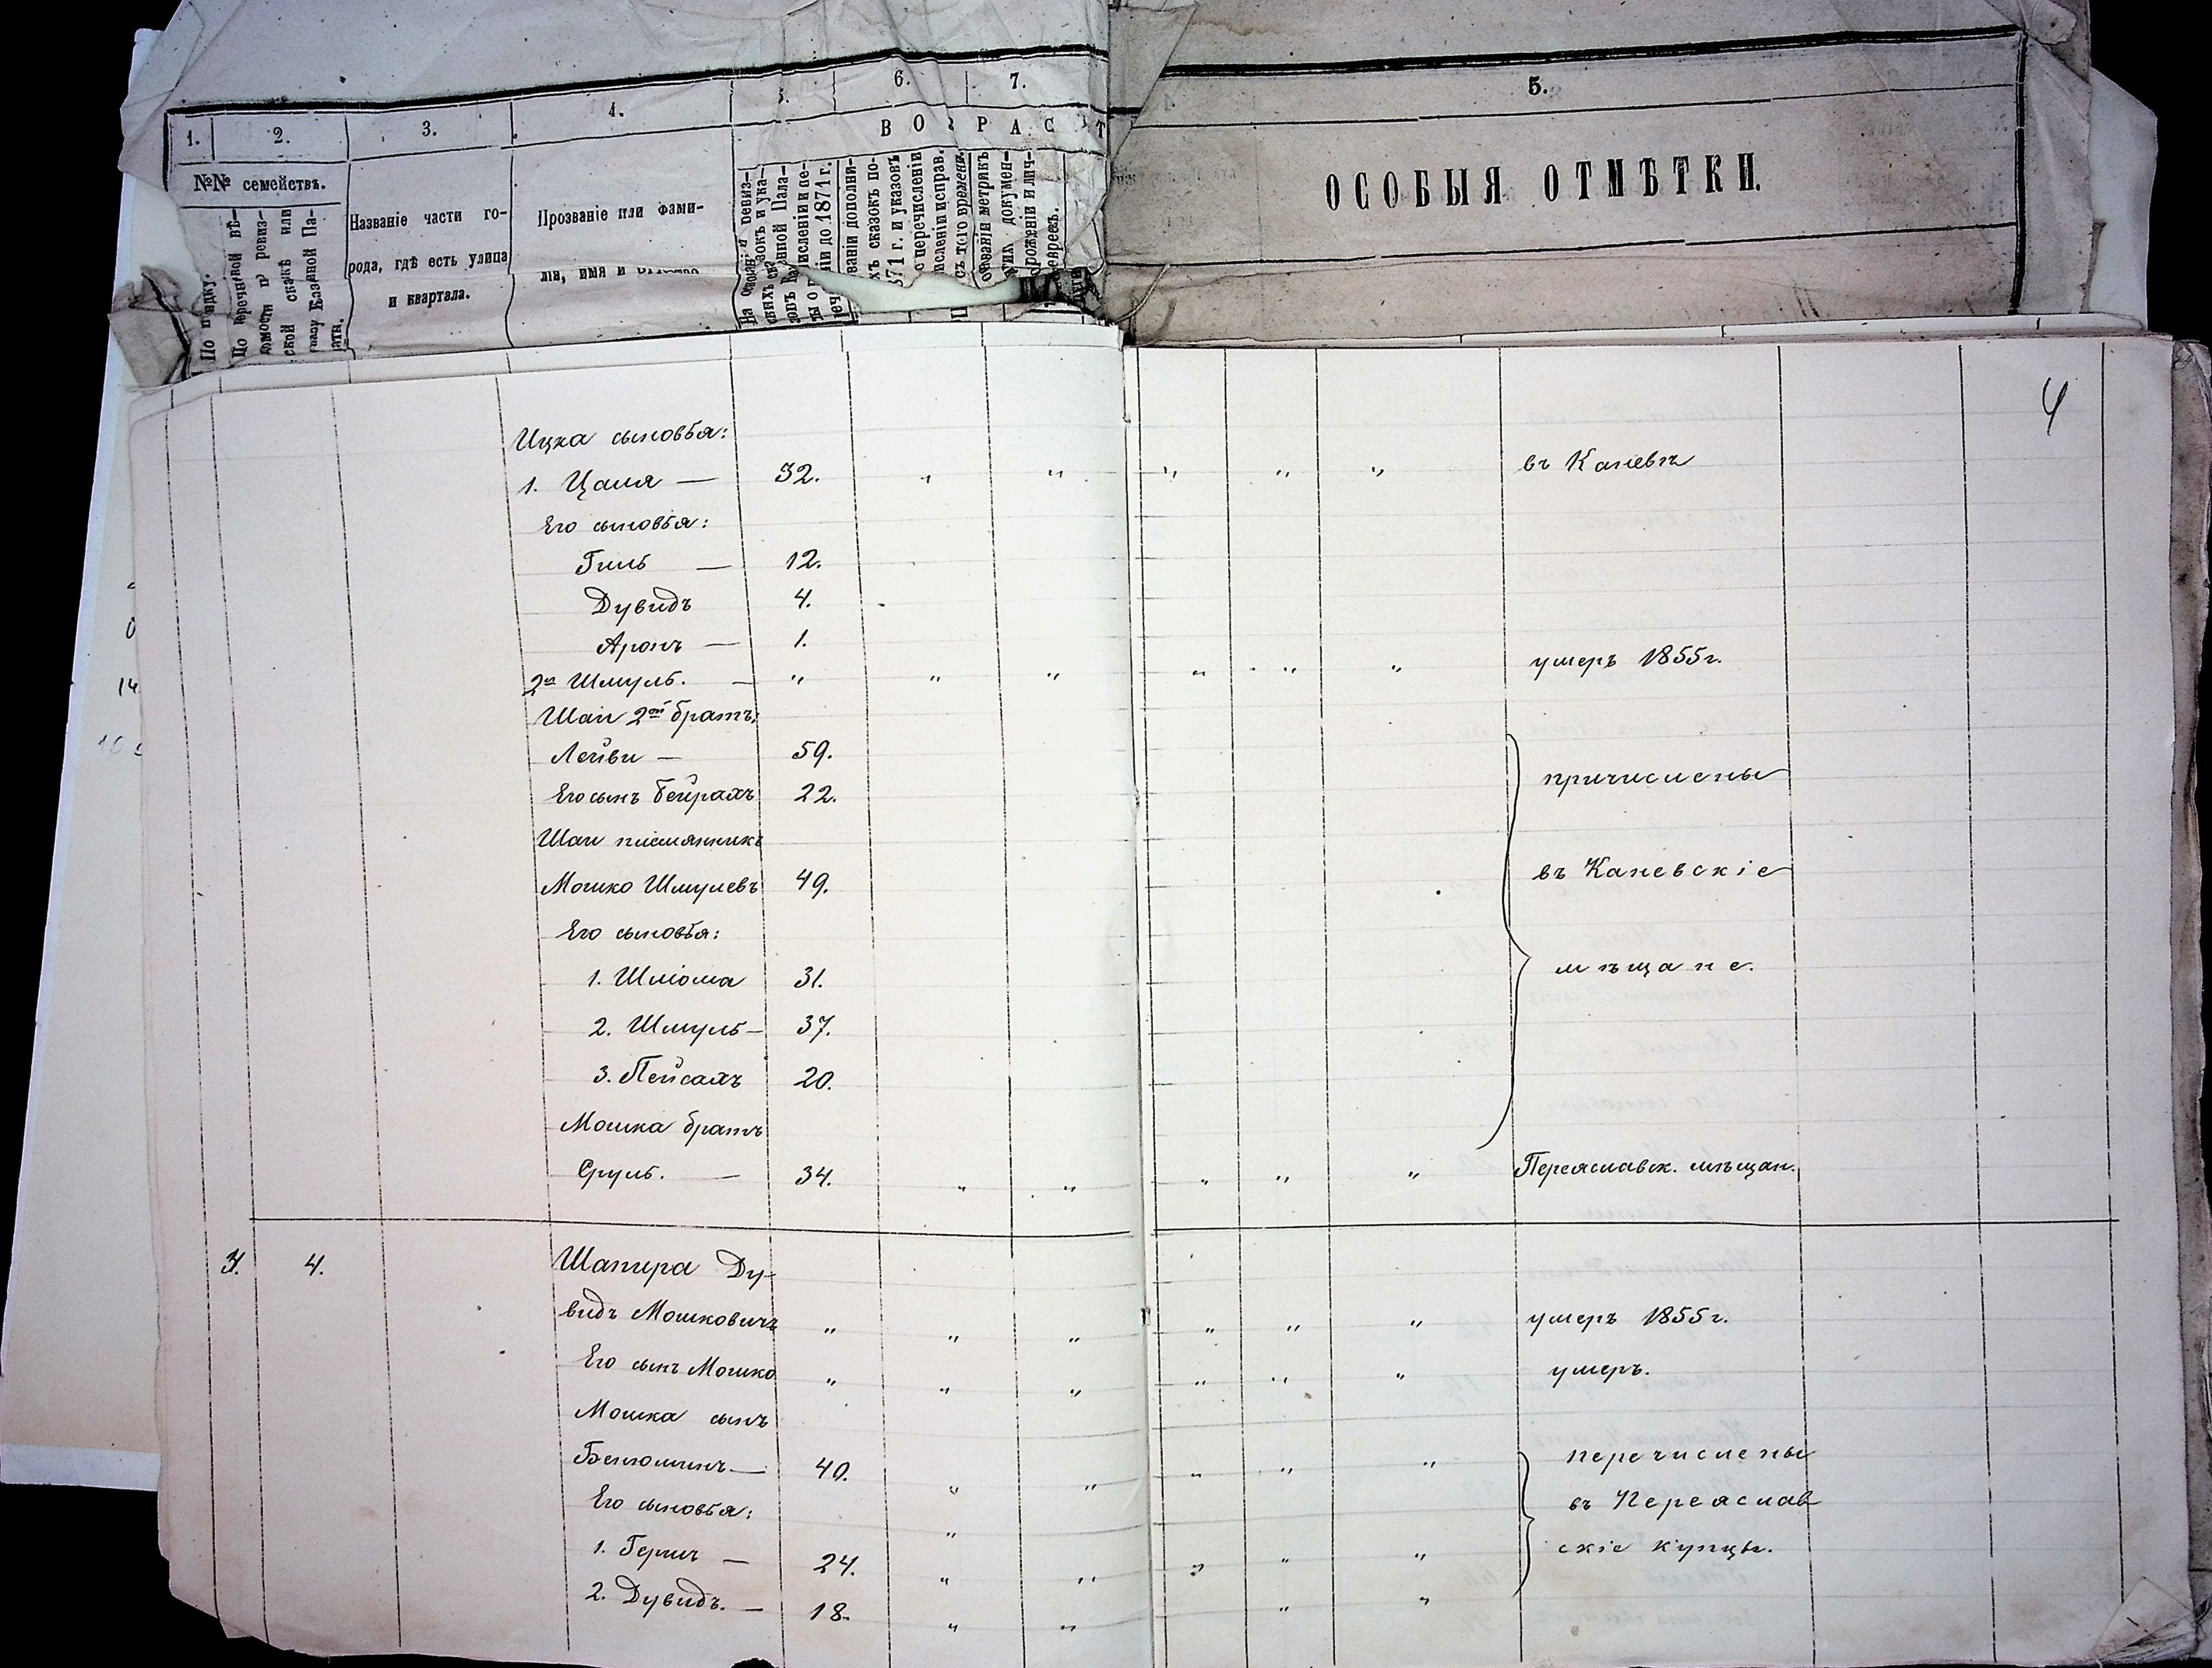 1. 2. 3. 4. 5. 6. 7.
5.
ВОЗРАСТ
ОСОБЫЯ ОТМѢТКИ.
№№ семействъ.
Названіе части го-
рода, гдѣ есть улица
и квартала.
Прозваніе или фами-
лія, имя и
4
Ицка сыновья:
1. Цаля — 32. " " " " " въ Каневѣ
Его сыновья:
Гиль — 12.
Дувидъ 4.
Аронъ — 1.
2й Шмуль. — " " " " " " умеръ 1855г.
Шаи 2й братъ:
Лейви — 59.
Его сынъ Бейрахъ 22.
причислены
Шаи племянникъ
Мошко Шмулевъ 49.
въ Каневскіе
Его сыновья:
1. Шліома 31.
мѣщане.
2. Шмуль — 37.
3. Пейсахъ 20.
Мошка братъ
Сруль. — 34. " " " " " Переяславск. мѣщан.
3. 4. Шапира Ду-
видъ Мошковичъ " " " " " " умеръ 1855г.
Его сынъ Мошко " " " " " " умеръ.
Мошка сынъ
Бенюминъ — 40. " " " " " перечислены
Его сыновья: " въ Переяслав
1. Герш — 24. " " " " " скіе купцы.
2. Дувидъ. — 18. " " " "